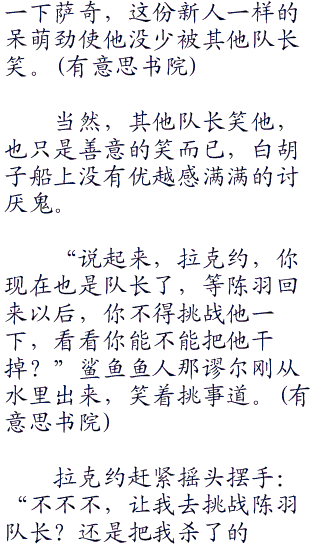 一下萨奇，这份新人一样的
呆萌劲使他没少被其他队长
笑。(有意思书院)
当然，其他队长笑他，
也只是善意的笑而已，白胡
子船上没有优越感满满的讨
厌鬼。
“说起来，拉克约，你
现在也是队长了，等陈羽回
来以后，你不得挑战他一
下，看看你能不能把他干
掉？”鲨鱼鱼人那谬尔刚从
水里出来，笑着挑事道。(有
意思书院)
拉克约赶紧摇头摆手：
“不不不，让我去挑战陈羽
队长？还是把我杀了的